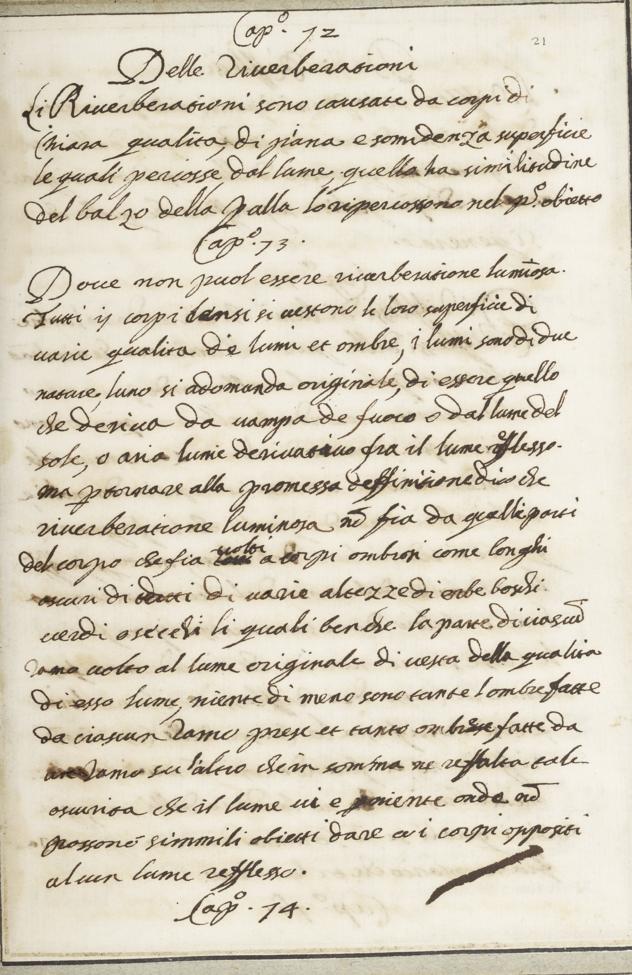 Cap.º 72
21
Delle Riverberationi
Li Riuerberationi sono causate da corpi di
Chiara qualita, di piana e semidenza superficie
le quali percosse dal lume, quello ha similitudine
del balzo della palla lo ripercossono nel p.º obietto
Cap.º 73.
Doue non puol essere riuerberatione luminosa.
Tutti ij corpi densi si uestono le loro superficie di
uarie qualita de lumi et ombre, i lumi sono di due
nature, luno si adomanda originale, di essere quello
che deriua da uampa de fuoco o dal lume del
sole, o aria lume deriuatiuo fra il lume refflesso.
ma p tornare alla promessa deffinitione dico che
riuerberatione luminosa nō fia da quelle parti
del corpo che fia uolti a corpi ombrosi come longhi
oscuri di tetti di uarie altezze di erbe boschi
uerdi o secchi li quali benche la parte di ciascū
ramo uolto al lume originale di uesta della qualita
di esso lume, niente di meno sono tante lombre fatte
da ciascun ramo prese et tanto ombre fatte da
ramo su l'altro che in somma ne resulta tale
oscurita che il lume ui e p niente onde nō
possono simmili obietti dare a i corpi oppositi
alcun lume refflesso.
Cap.º 74.